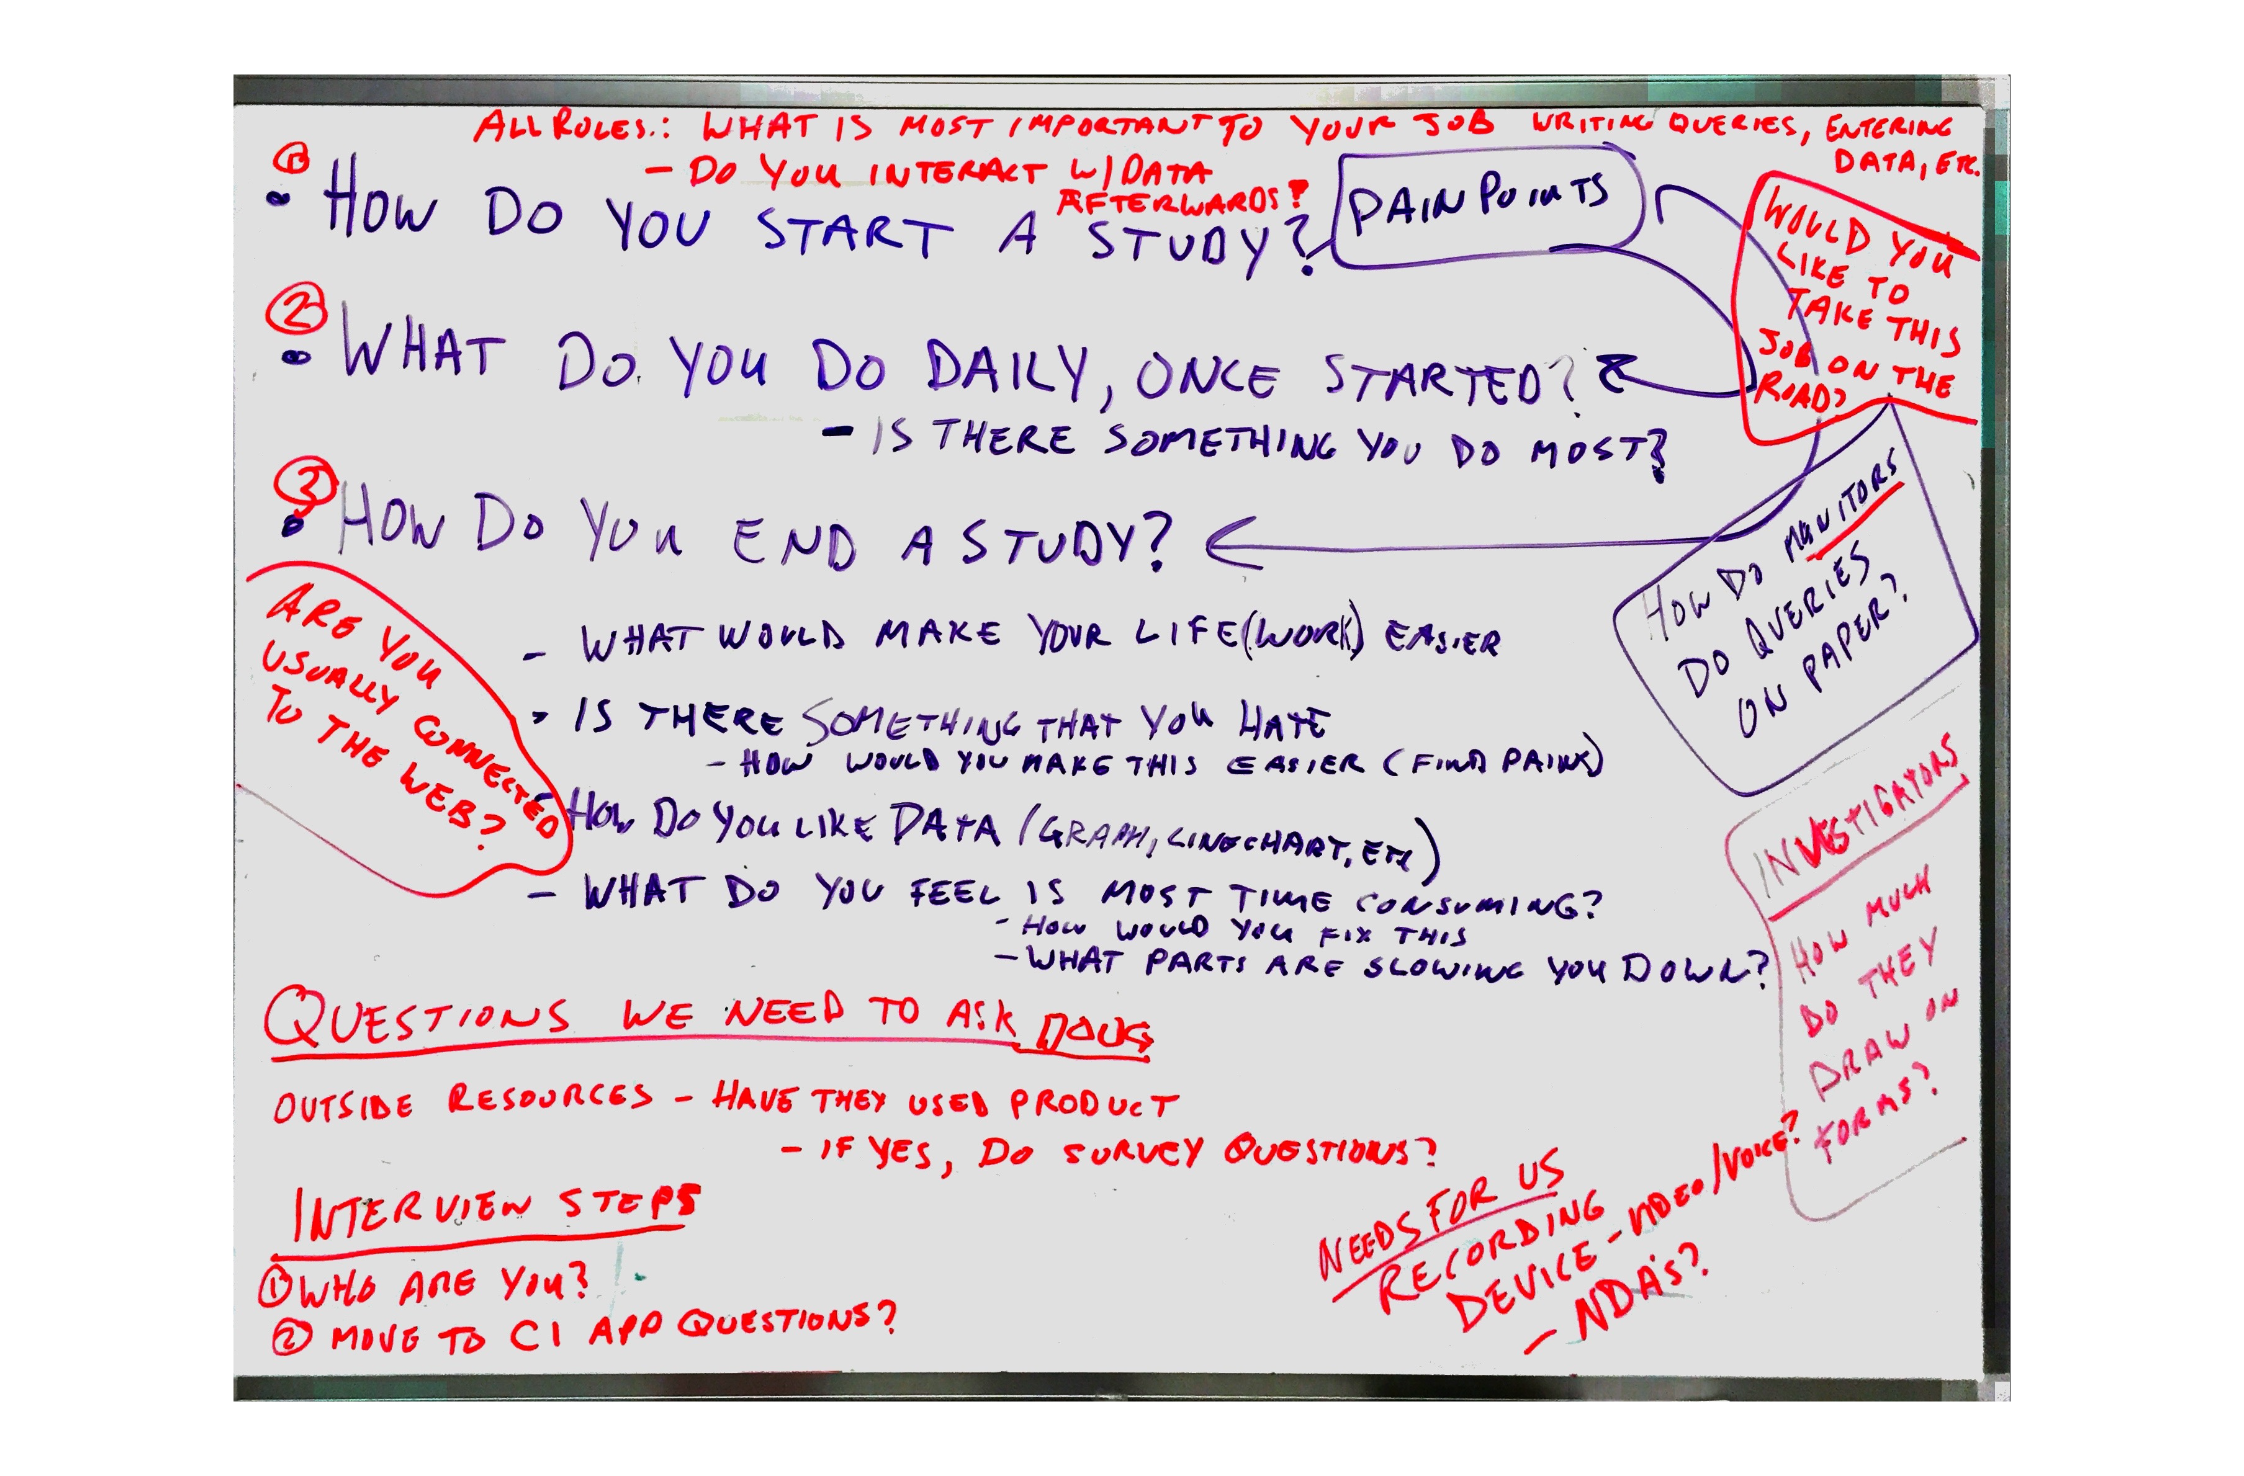 ALL ROLES: WHAT IS MOST IMPORTANT TO YOUR JOB WRITING QUERIES, ENTERING
DATA, ETC.
- DO YOU INTERACT W/ DATA
AFTERWARDS?
① • HOW DO YOU START A STUDY?
PAIN POINTS
WOULD YOU
LIKE TO
TAKE THIS
JOB ON THE
ROAD?
② • WHAT DO YOU DO DAILY, ONCE STARTED?
- IS THERE SOMETHING YOU DO MOST?
③ • HOW DO YOU END A STUDY?
HOW DO MONITORS
DO QUERIES
ON PAPER?
ARE YOU
USUALLY CONNECTED
TO THE WEB?
- WHAT WOULD MAKE YOUR LIFE (WORK) EASIER
- IS THERE SOMETHING THAT YOU HATE
- HOW WOULD YOU MAKE THIS EASIER (FIND PAINS)
- HOW DO YOU LIKE DATA (GRAPH, LINECHART, ETC)
- WHAT DO YOU FEEL IS MOST TIME CONSUMING?
- HOW WOULD YOU FIX THIS
- WHAT PARTS ARE SLOWING YOU DOWN?
INVESTIGATORS
HOW MUCH
DO THEY
DRAW ON
FORMS?
QUESTIONS WE NEED TO ASK DOUG
OUTSIDE RESOURCES - HAVE THEY USED PRODUCT
- IF YES, DO SURVEY QUESTIONS?
INTERVIEW STEPS
① WHO ARE YOU?
② MOVE TO CI APP QUESTIONS?
NEEDS FOR US
RECORDING
DEVICE - VIDEO/VOICE?
- NDA'S?